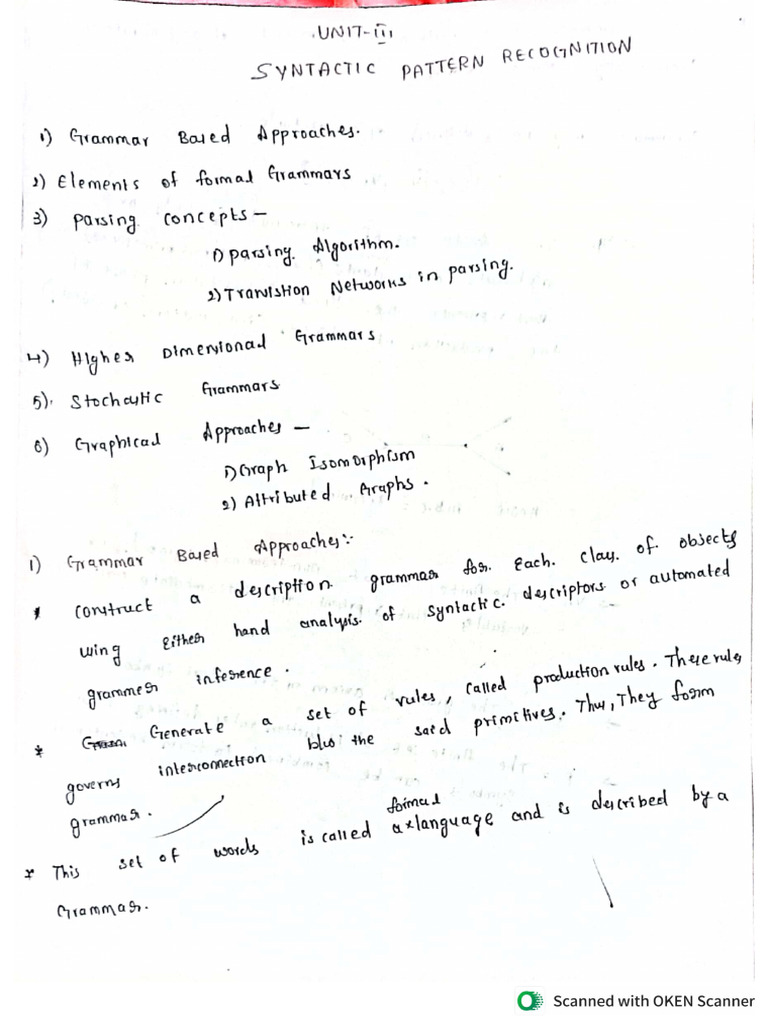 UNIT-III
SYNTACTIC PATTERN RECOGNITION
1) Grammar Based Approaches.
2) Elements of formal Grammars
3) Parsing concepts —
1) parsing Algorithm.
2) Transistion Networks in parsing.
4) Higher Dimensional Grammars
5). Stochastic Grammars
6) Graphical Approaches —
1) Graph Isomorphism
2) Attributed Graphs.
1) Grammar Based Approaches:-
* construct a description grammar for. Each. class. of objects
using Either hand analysis. of syntactic. descriptors or automated
grammer inference.
* Generate a set of rules, called production rules. These rules
governs interconnection b/w: the said primitives. Thus, They form
grammar.
* This set of words is called a formal language and is described by a
Grammar.
Scanned with OKEN Scanner